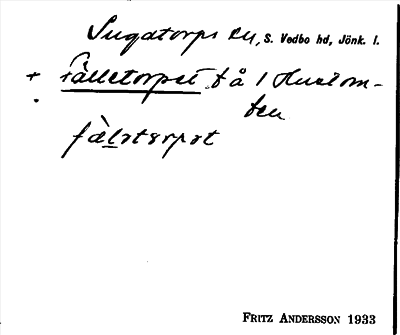 Ingatorps sn, S. Vedbo hd, Jönk. l.
+ Fälletorpet, bå 1 Hustom-
ten
fàlətɔrpət
FRITZ ANDERSSON 1933